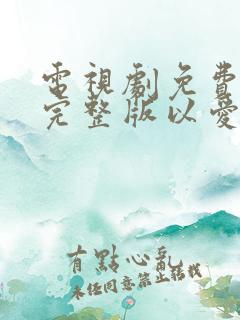 電視劇免費
完整版以愛
有點心亂
未經同意禁止轉載